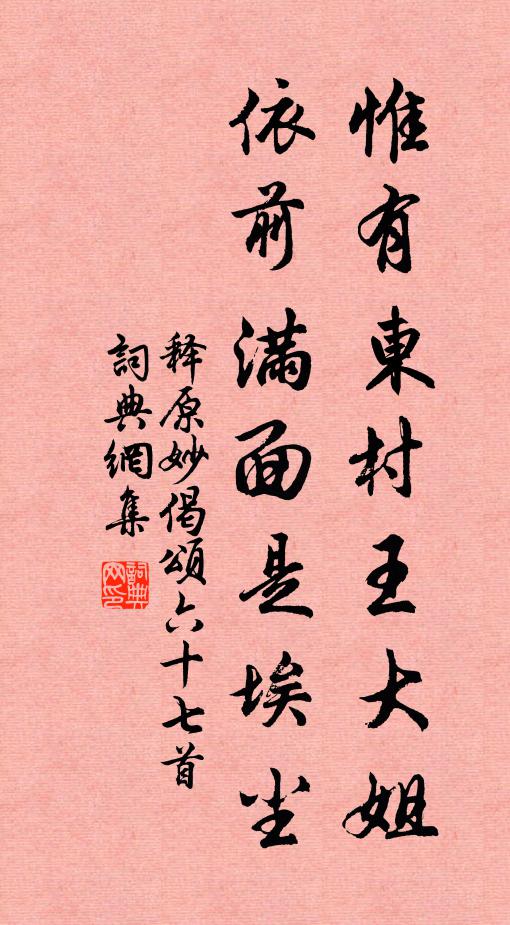 惟有東村王大姐
依前滿面是埃尘
释原妙偈頌六十七首
詞典網集
詞典网印